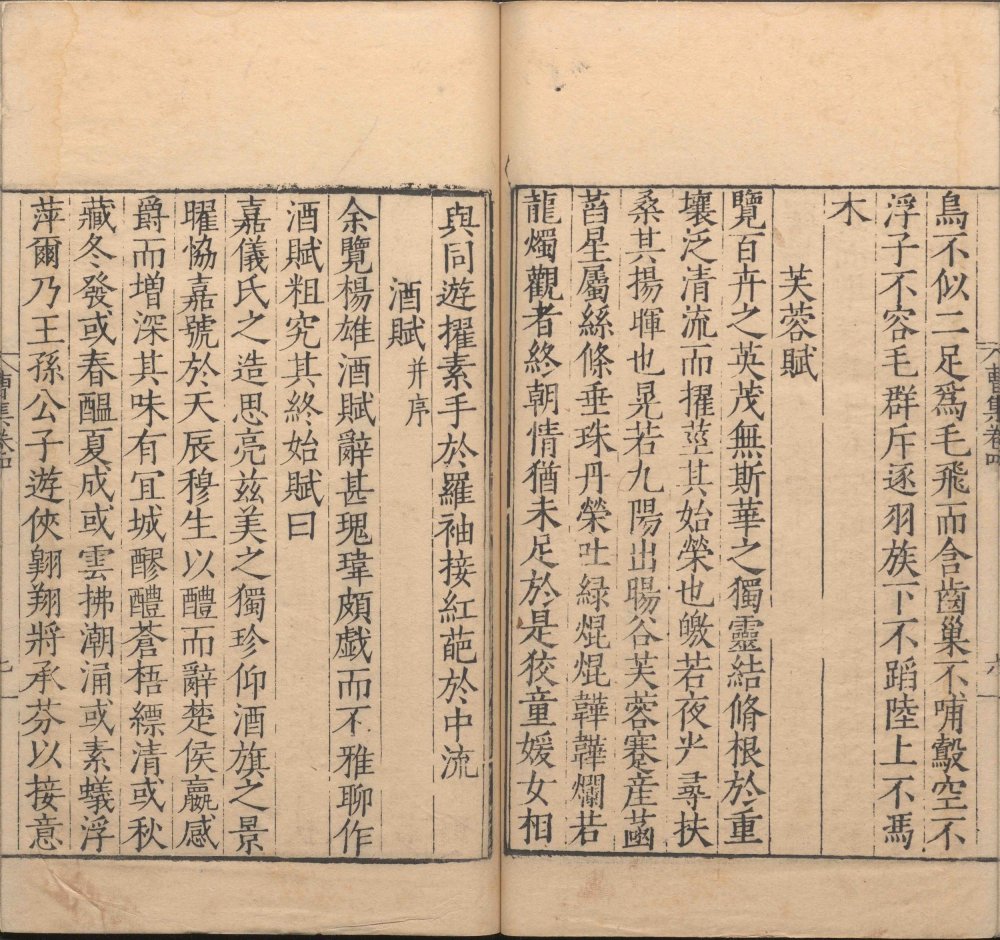 鳥不似二足爲毛飛而含齒巢不哺鷇空不
浮子不容毛群斥逐羽族下不蹈陸上不馮
木
芙蓉賦
覽百卉之英茂無斯華之獨靈結脩根於重
壤泛清流而擢莖其始榮也皦若夜光尋扶
桑其揚暉也晃若九陽出暘谷芙蓉蹇産菡
萏星屬絲條垂珠丹榮吐緑焜焜韡韡爛若
龍燭觀者終朝情猶未足於是狡童媛女相
曹集卷四
與同遊擢素手於羅袖接紅葩於中流
酒賦 并序
余覽楊雄酒賦辭甚瑰瑋頗戲而不雅聊作
酒賦粗究其終始賦曰
嘉儀氏之造思亮茲美之獨珍仰酒旗之景
曜協嘉號於天辰穆生以醴而辭楚侯嬴感
爵而增深其味有宜城醪醴蒼梧縹清或秋
藏冬發或春醞夏成或雲拂潮涌或素蟻浮
萍爾乃王孫公子遊俠翺翔將承芬以接意
曹集卷四
七